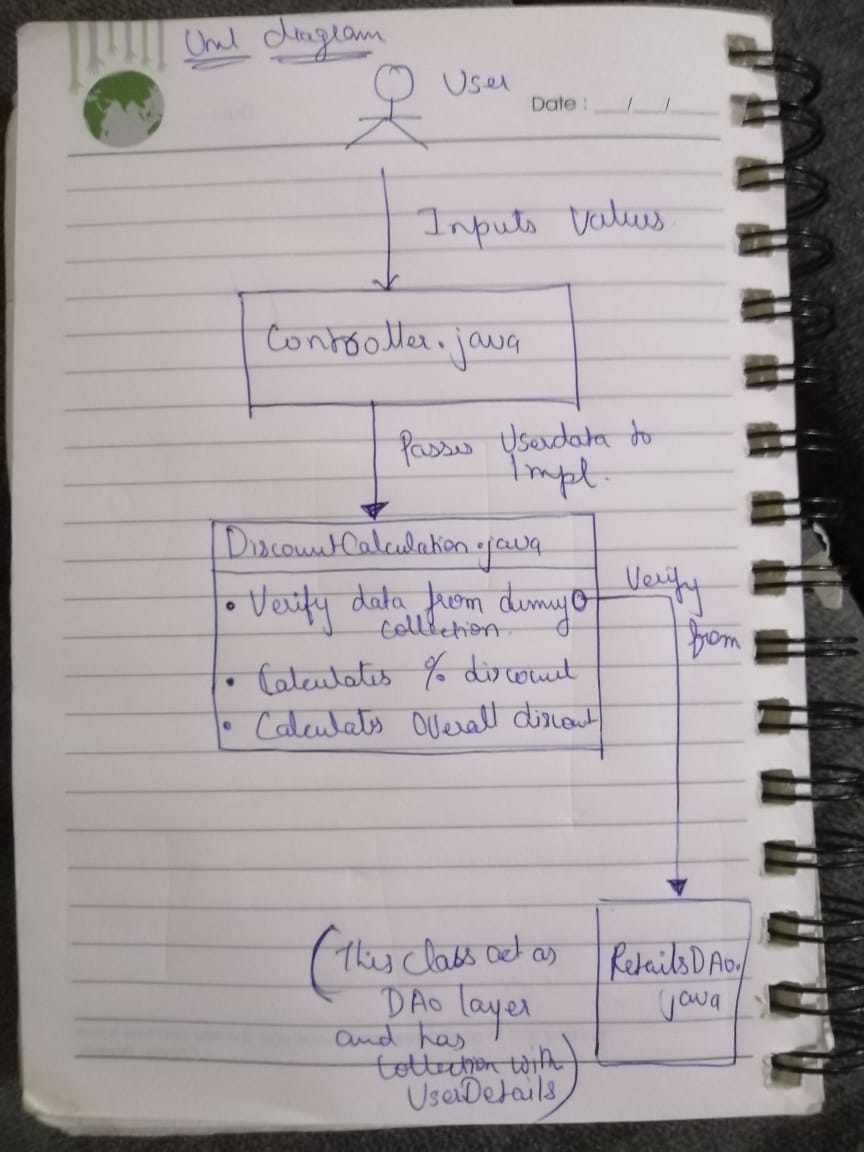 Uml diagram
User
Date : __/__/__
Inputs Values
Controller.java
Passes Userdata to
Impl.
DiscountCalculation.java
• Verify data from dummy
collection.
• Calculates % discount
• Calculates Overall discount
Verify
from
(This class act as
DAO layer
and has
Collection with
UserDetails)
RetailsDAO.
java